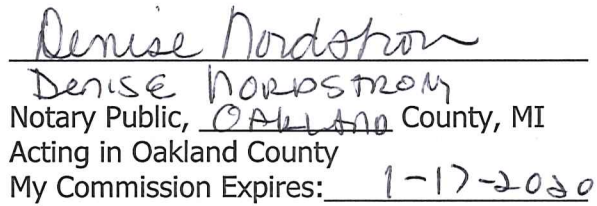 Denise Nordstrom
DENISE NORDSTROM
Notary Public, OAKLAND County, MI
Acting in Oakland County
My Commission Expires: 1-17-2020